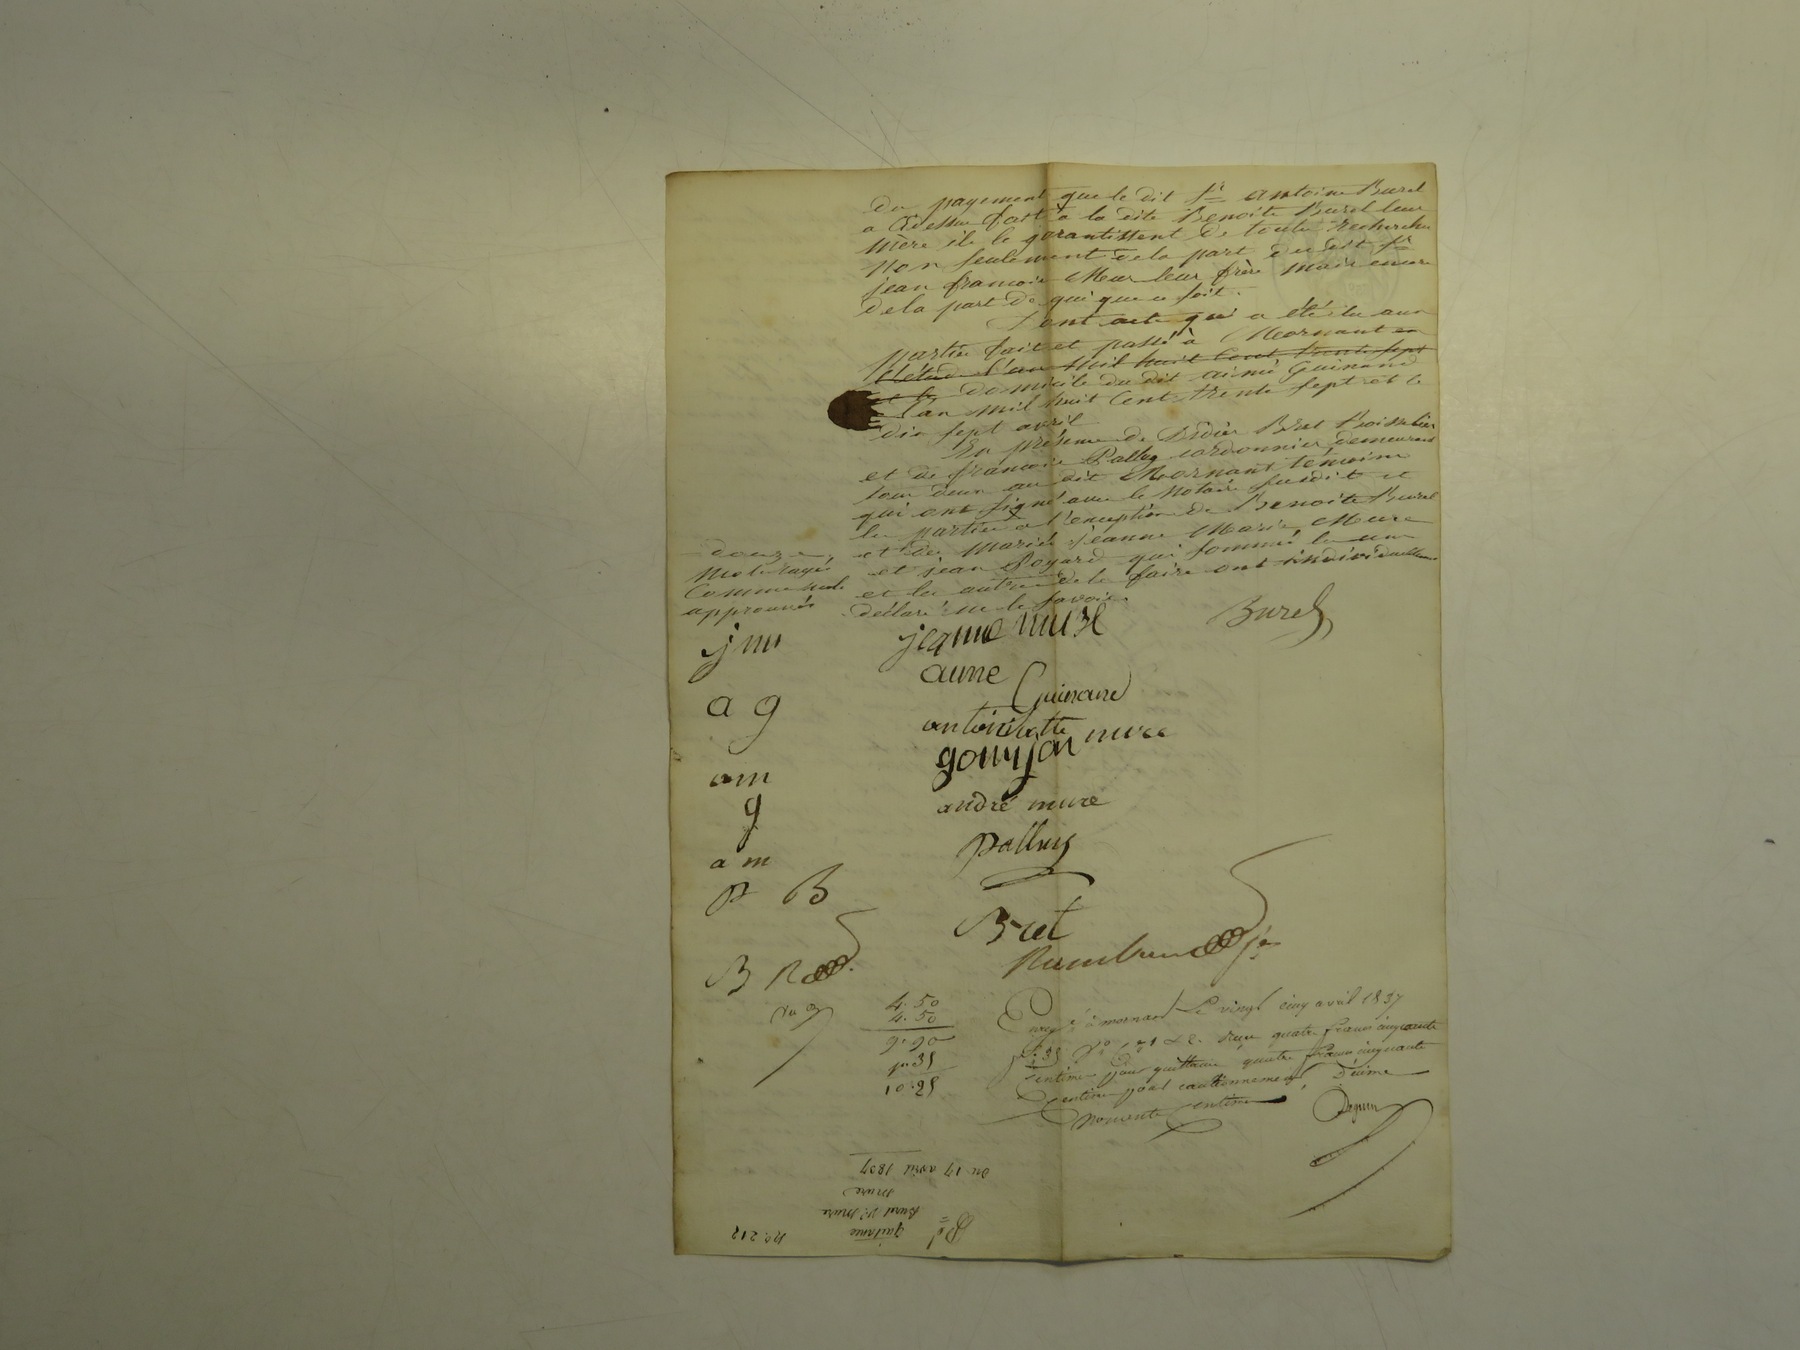 du payement que le dit Sr antoine Burel
a Cidessu fait a la dite Benoite Burel leur
mère ils le garantissent de toute recherche
non seulement de la part du dit Sr
jean francois Mure leur frère mais encore
de la part de qui que ce soit.
Dont acte qui a été lu aux
parties fait et passé à Mornant en
l'étude l'an mil huit Cent trente sept
et le domicile du dit aimé Guinand
l'an mil huit Cent trente sept et le
dix sept avril
En présence de Didier Bret
et de francois Palluy cordonnier demeurant
tous deux au dit Mornant témoins
qui ont signé avec le Notaire susdit et
les parties a l'exception de Benoite Burel
et de Marie jeanne Marie Mure
et jean Poyard qui sommé les uns
et les autres de le faire ont individuellement
déclaré ne le savoir.
douze
mots rayés
Comme nuls
approuvés
Burel
j mu
jeanne mure
a g
aime Guinand
antoinette mure
a m
goujon
g
andré mure
a m
palluy
P B
Bret
B R
4. 50
4. 50
9. 90
10. 25
Enregé à mornant le vingt cinq avril 1837
Reçu quatre francs cinquante
Centimes pour quittance quatre francs cinquante
Centimes pour cautionnement, Décime
Nonante Centimes
No. 212
quittance
Burel Ve Mure
Mure
du 17 avril 1837